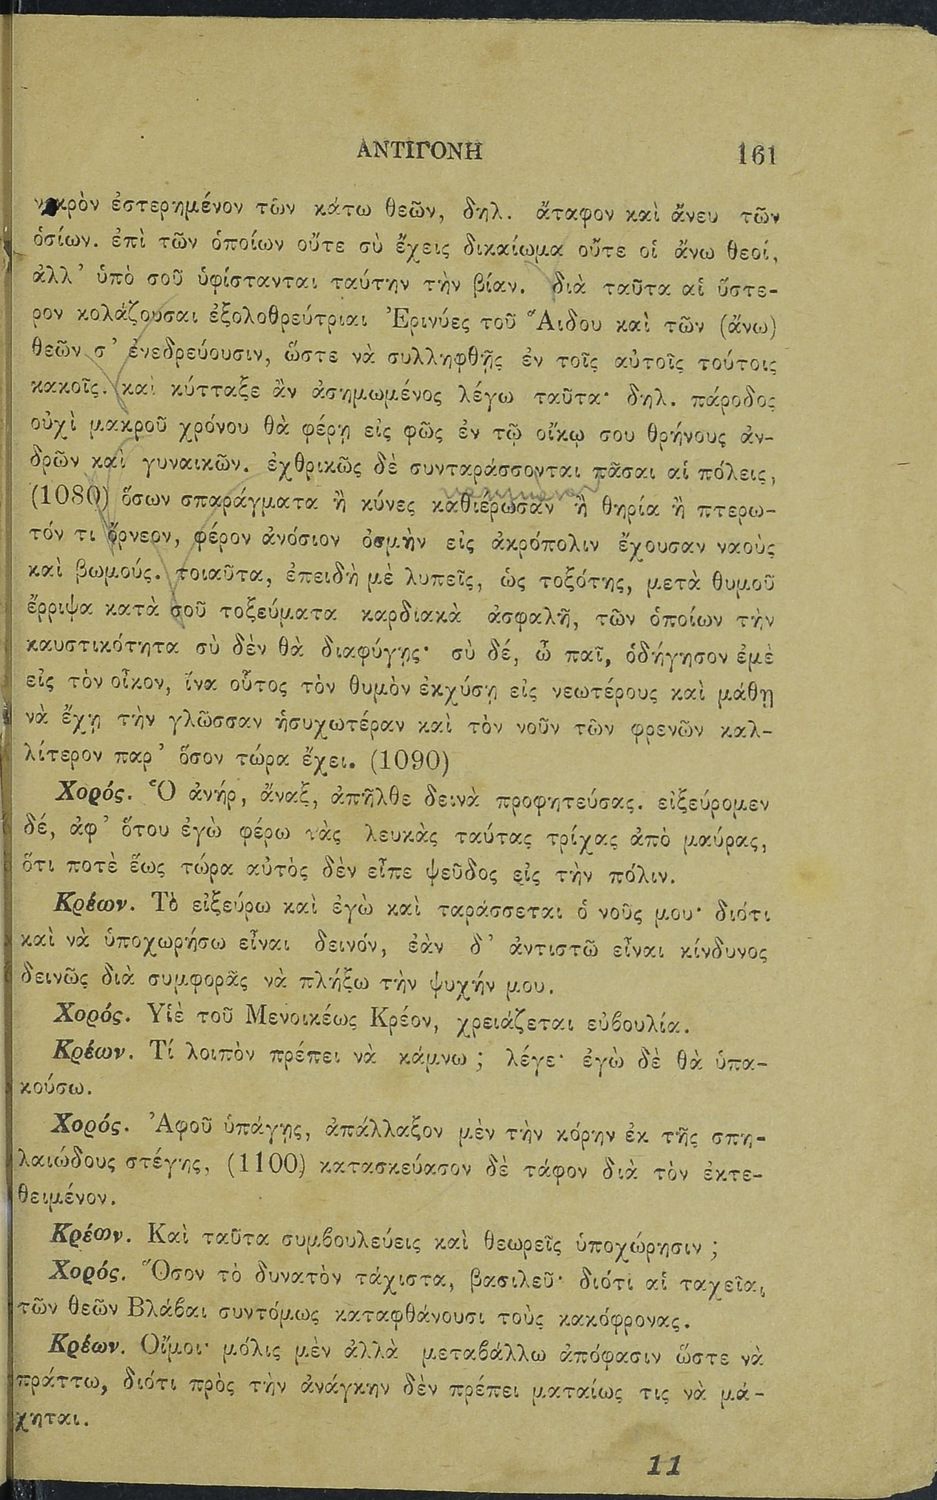 ΑΝΤΙΓΟΝΗ 161
νεκρὸν ἐστερημένον τῶν κάτω θεῶν, δηλ. ἄταφον καὶ ἄνευ τῶν
ὁσίων. ἐπὶ τῶν ὁποίων οὔτε σὺ ἔχεις δικαίωμα οὔτε οἱ ἄνω θεοί,
ἀλλ’ ὑπὸ σοῦ ὑφίστανται ταύτην τὴν βίαν. διὰ ταῦτα αἱ ὕστε-
ρον κολάζουσαι ἐξολοθρεύτριαι Ἐρινύες τοῦ Ἅιδου καὶ τῶν (ἄνω)
θεῶν σ’ ἐνεδρεύουσιν, ὥστε νὰ συλληφθῇς ἐν τοῖς αὐτοῖς τούτοις
κακοῖς. καὶ κύτταξε ἂν ἀσημωμένος λέγω ταῦτα· δηλ. πάροδος
οὐχὶ μακροῦ χρόνου θὰ φέρῃ εἰς φῶς ἐν τῷ οἴκῳ σου θρήνους ἀν-
δρῶν καὶ γυναικῶν. ἐχθρικῶς δὲ συνταράσσονται πᾶσαι αἱ πόλεις,
(1080) ὅσων σπαράγματα ἢ κύνες καθιέρωσαν ἢ θηρία ἢ πτερω-
τόν τι ὄρνεον, φέρον ἀνόσιον ὀσμὴν εἰς ἀκρόπολιν ἔχουσαν ναοὺς
καὶ βωμούς. τοιαῦτα, ἐπειδὴ μὲ λυπεῖς, ὡς τοξότης, μετὰ θυμοῦ
ἔρριψα κατὰ σοῦ τοξεύματα καρδιακὰ ἀσφαλῆ, τῶν ὁποίων τὴν
καυστικότητα σὺ δὲν θὰ διαφύγῃς· σὺ δέ, ὦ παῖ, ὁδήγησον ἐμὲ
εἰς τὸν οἶκον, ἵνα οὗτος τὸν θυμὸν ἐκχύσῃ εἰς νεωτέρους καὶ μάθῃ
νὰ ἔχῃ τὴν γλῶσσαν ἡσυχωτέραν καὶ τὸν νοῦν τῶν φρενῶν καλ-
λίτερον παρ’ ὅσον τώρα ἔχει. (1090)
Χορός. Ὁ ἀνήρ, ἄναξ, ἀπῆλθε δεινὰ προφητεύσας. εἰξεύρομεν
δέ, ἀφ’ ὅτου ἐγὼ φέρω τὰς λευκὰς ταύτας τρίχας ἀπὸ μαύρας,
ὅτι ποτὲ ἕως τώρα αὐτὸς δὲν εἶπε ψεῦδος εἰς τὴν πόλιν.
Κρέων. Τὸ εἰξεύρω καὶ ἐγὼ καὶ ταράσσεται ὁ νοῦς μου· διότι
καὶ νὰ ὑποχωρήσω εἶναι δεινόν, ἐὰν δ’ ἀντιστῶ εἶναι κίνδυνος
δεινῶς διὰ συμφορᾶς νὰ πλήξω τὴν ψυχήν μου.
Χορός. Υἱὲ τοῦ Μενοικέως Κρέον, χρειάζεται εὐβουλία.
Κρέων. Τί λοιπὸν πρέπει νὰ κάμνω ; λέγε· ἐγὼ δὲ θὰ ὑπα-
κούσω.
Χορός. Ἀφοῦ ὑπάγῃς, ἀπάλλαξον μὲν τὴν κόρην ἐκ τῆς σπη-
λαιώδους στέγης, (1100) κατασκεύασον δὲ τάφον διὰ τὸν ἐκτε-
θειμένον.
Κρέων. Καὶ ταῦτα συμβουλεύεις καὶ θεωρεῖς ὑποχώρησιν ;
Χορός. Ὅσον τὸ δυνατὸν τάχιστα, βασιλεῦ· διότί αἱ ταχεῖαι
τῶν θεῶν Βλάβαι συντόμως καταφθάνουσι τοὺς κακόφρονας.
Κρέων. Οἴμοι· μόλις μὲν ἀλλὰ μεταβάλλω ἀπόφασιν ὥστε νὰ
πράττω, διότι πρὸς τὴν ἀνάγκην δὲν πρέπει ματαίως τις νὰ μά-
χηται.
11